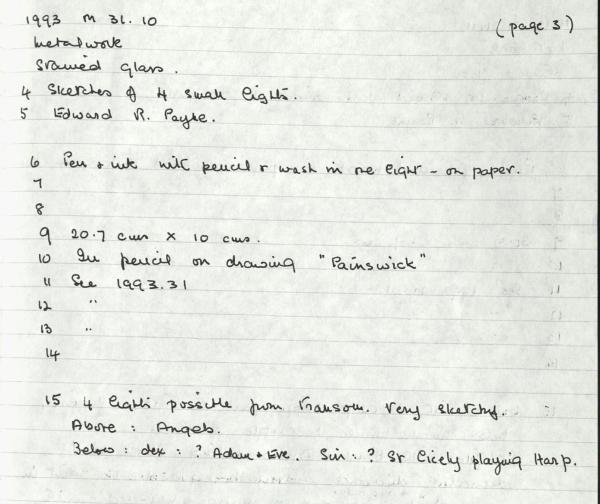 1993 M 31.10 (page 3)
Metalwork
Stained Glass.
4 Sketches of 4 small lights.
5 Edward R. Payne.
6 Pen + ink with pencil + wash in one light - on paper.
7
8
9 20.7 cms x 10 cms.
10 In pencil on drawing "Painswick"
11 See 1993.31
12 "
13 "
14
15 4 lights possible from transom. Very sketchy.
Above : Angels.
Below : dex : ? Adam + Eve. Sin : ? St Cicely playing Harp.